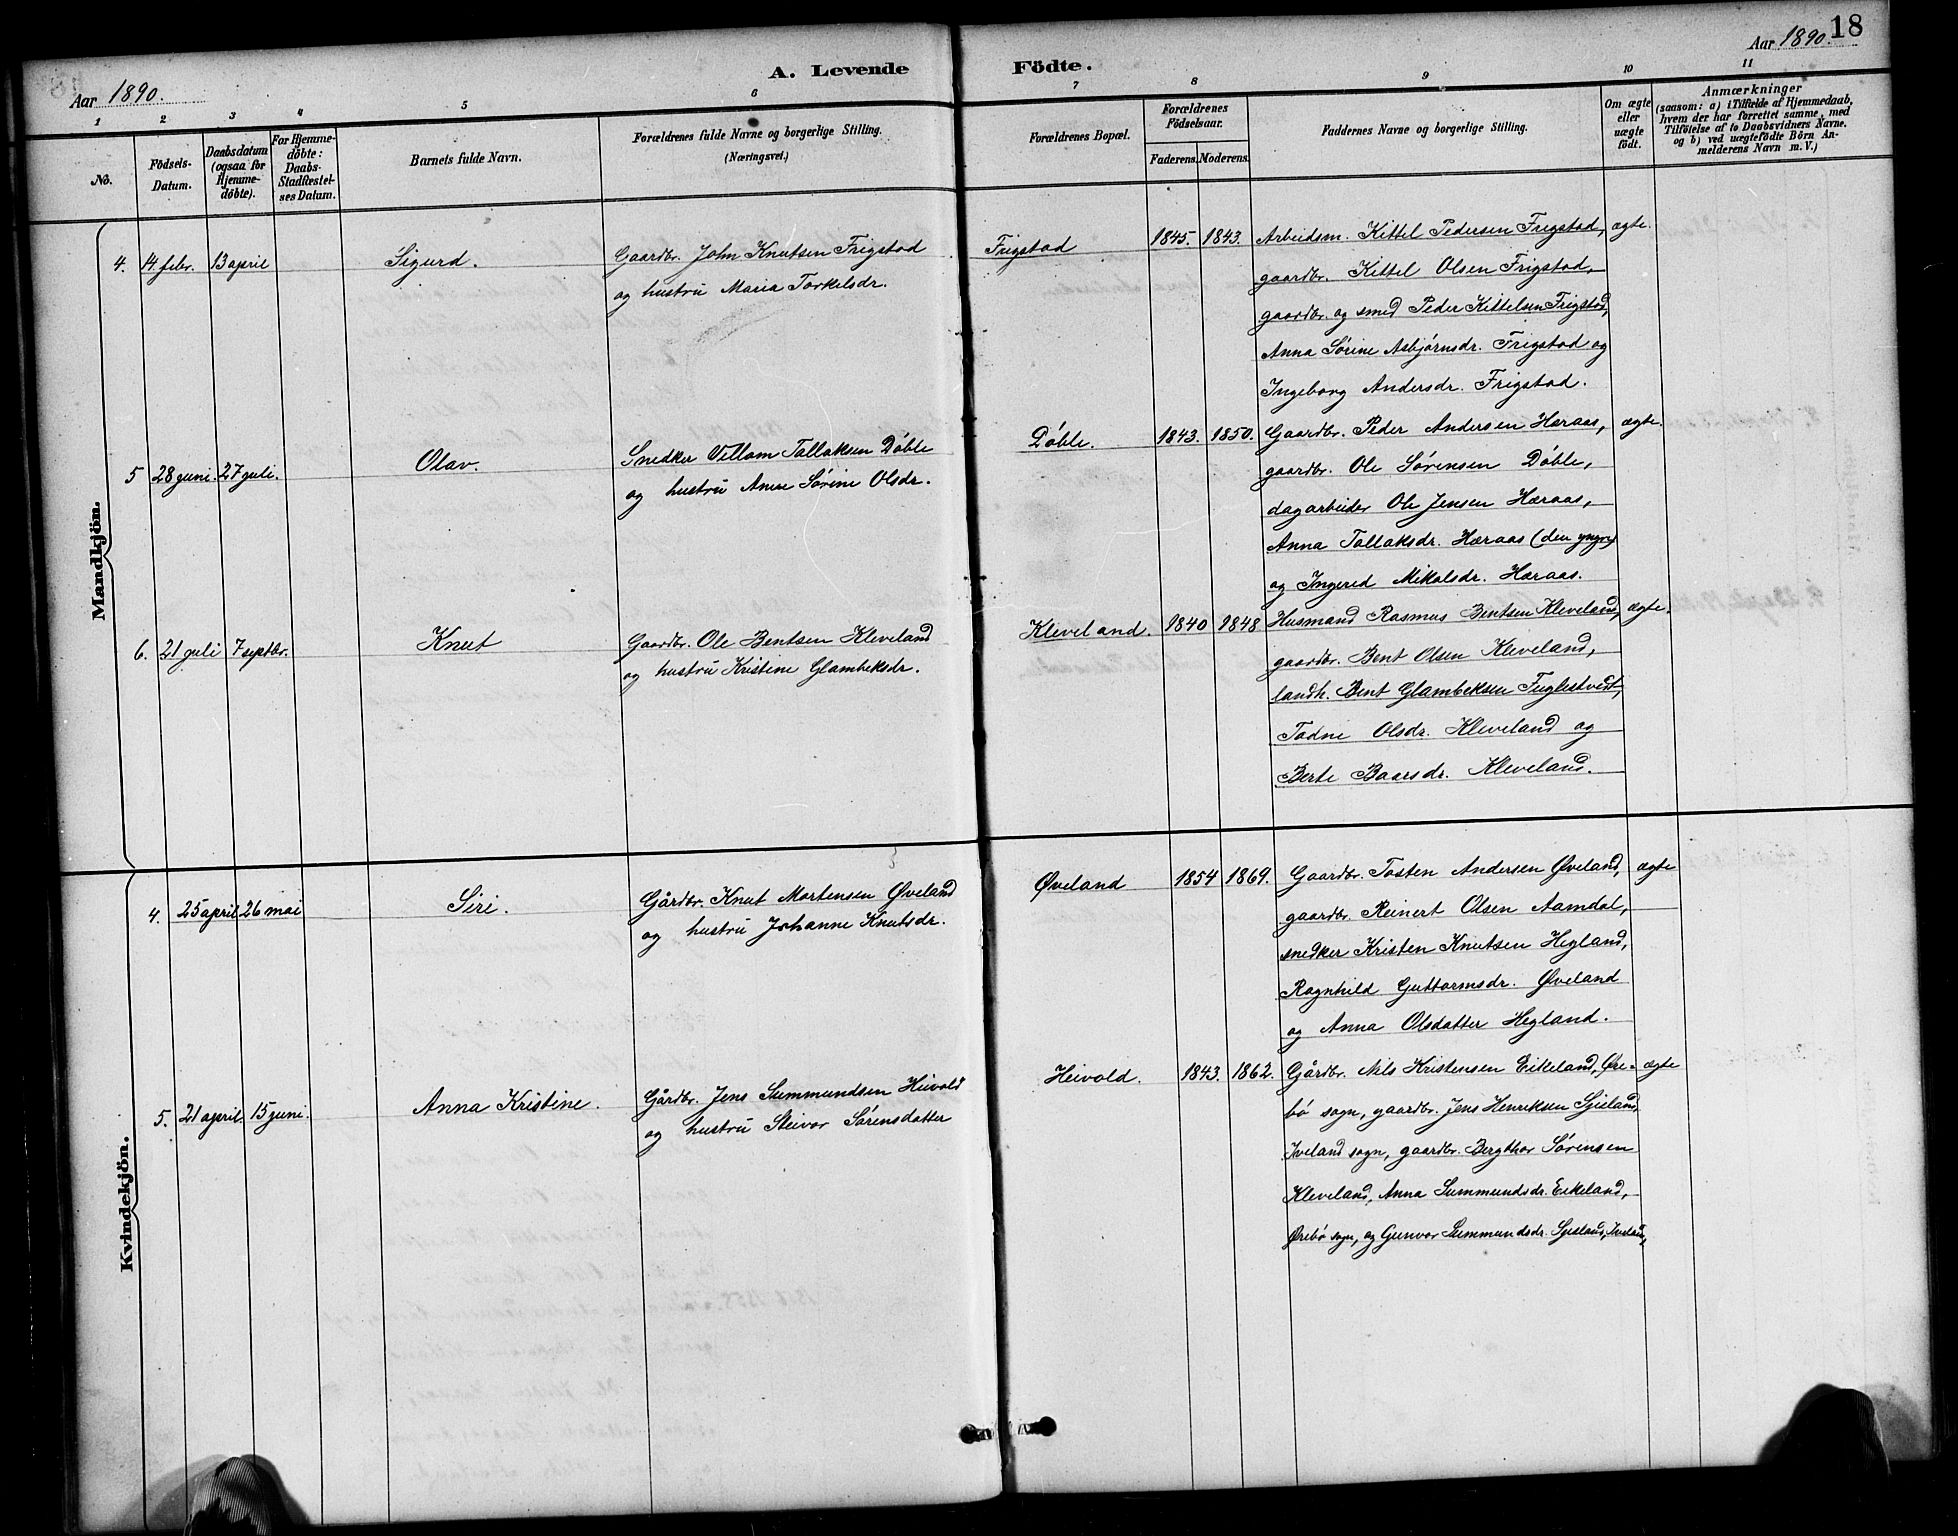 18
Aar 1890.
A. Levende Födte.
Aar 1890.
1 2 3 4 5 6 7 8 9 10 11
No.
Födsels-Datum.
Daabsdatum (ogsaa for Hjemme-döbte).
For Hjemme-döbte: Daabs-Stadfæstel-ses Datum.
Barnets fulde Navn.
Forældrenes fulde Navne og borgerlige Stilling.
(Næringsvei.)
Forældrenes Bopæl.
Forældrenes Födselsaar.
Faderens. Moderens.
Faddernes Navne og borgerlige Stilling.
Om ægte eller uægte født.
Anmærkninger
(saasom: a) i Tilfælde af Hjemmedaab,
hvem der har forrettet samme, med
Tilföielse af to Daabsvidners Navne.
og b) ved uægtefödte Börn An-
melderens Navn m. V.)
Mandkjön.
4. 14 febr. 13 april Sigurd. Gaardbr. John Knutsen Frigstad
og hustru Maria Torkelsdr.
Frigstad 1845. 1843. Arbeidsm. Kittel Pedersen Frigstad, ægte.
gaardbr. Kittel Olsen Frigstad,
gaardbr. og smed Peder Kittelsen Frigstad,
Anna Sørine Asbjørnsdr. Frigstad og
Ingeborg Andersdr. Frigstad.
5 28 juni. 27 juli. Olav. Snedker Villam Tallaksen Døble
og hustru Anne Sørine Olsdr.
Døble. 1843. 1850. Gaardbr. Peder Andersen Hæraas, ægte.
gaardbr. Ole Sørensen Døble,
dagarbeider Ole Jensen Hæraas,
Anna Tallaksdr. Hæraas (den yngre)
og Ingered Mikalsdr. Hæraas.
6. 21 juli 7 septbr. Knut Gaardbr. Ole Bentsen Kleveland
og hustru Kristine Glambeksdr.
Kleveland. 1840 1848 Husmand Rasmus Bentsen Kleveland, ægte.
gaardbr. Bent Olsen Kleveland,
landh. Bent Glambeksen Fuglestvedt,
Todne Olsdr. Kleveland og
Berte Baarsdr. Kleveland.
Kvindekjön.
4. 25 april 26 mai Siri. Gårdbr. Knut Mortensen Øveland
og hustru Johanne Knutsdr.
Øveland 1854 1869. Gaardbr. Tosten Andersen Øveland, ægte
gaardbr. Reinert Olsen Aamdal,
snedker Kristen Knutsen Hegland,
Ragnhild Guttormsdr. Øveland
og Anna Olsdatter Hegland.
5. 21 april. 15 juni. Anna Kristine. Gårdbr. Jens Summundsen Heivold
og hustru Steivor Sørensdatter
Heivold. 1843. 1862. Gårdbr. Nils Kristensen Eikeland, Øre- ægte
bø sogn, gaardbr. Jens Henriksen Sjisland
Iveland sogn, gaardbr. Bergthor Sørensen
Kleveland, Anna Summundsdr. Eikeland,
Ørebø sogn, og Gunvor Summundsdr. Sjisland,